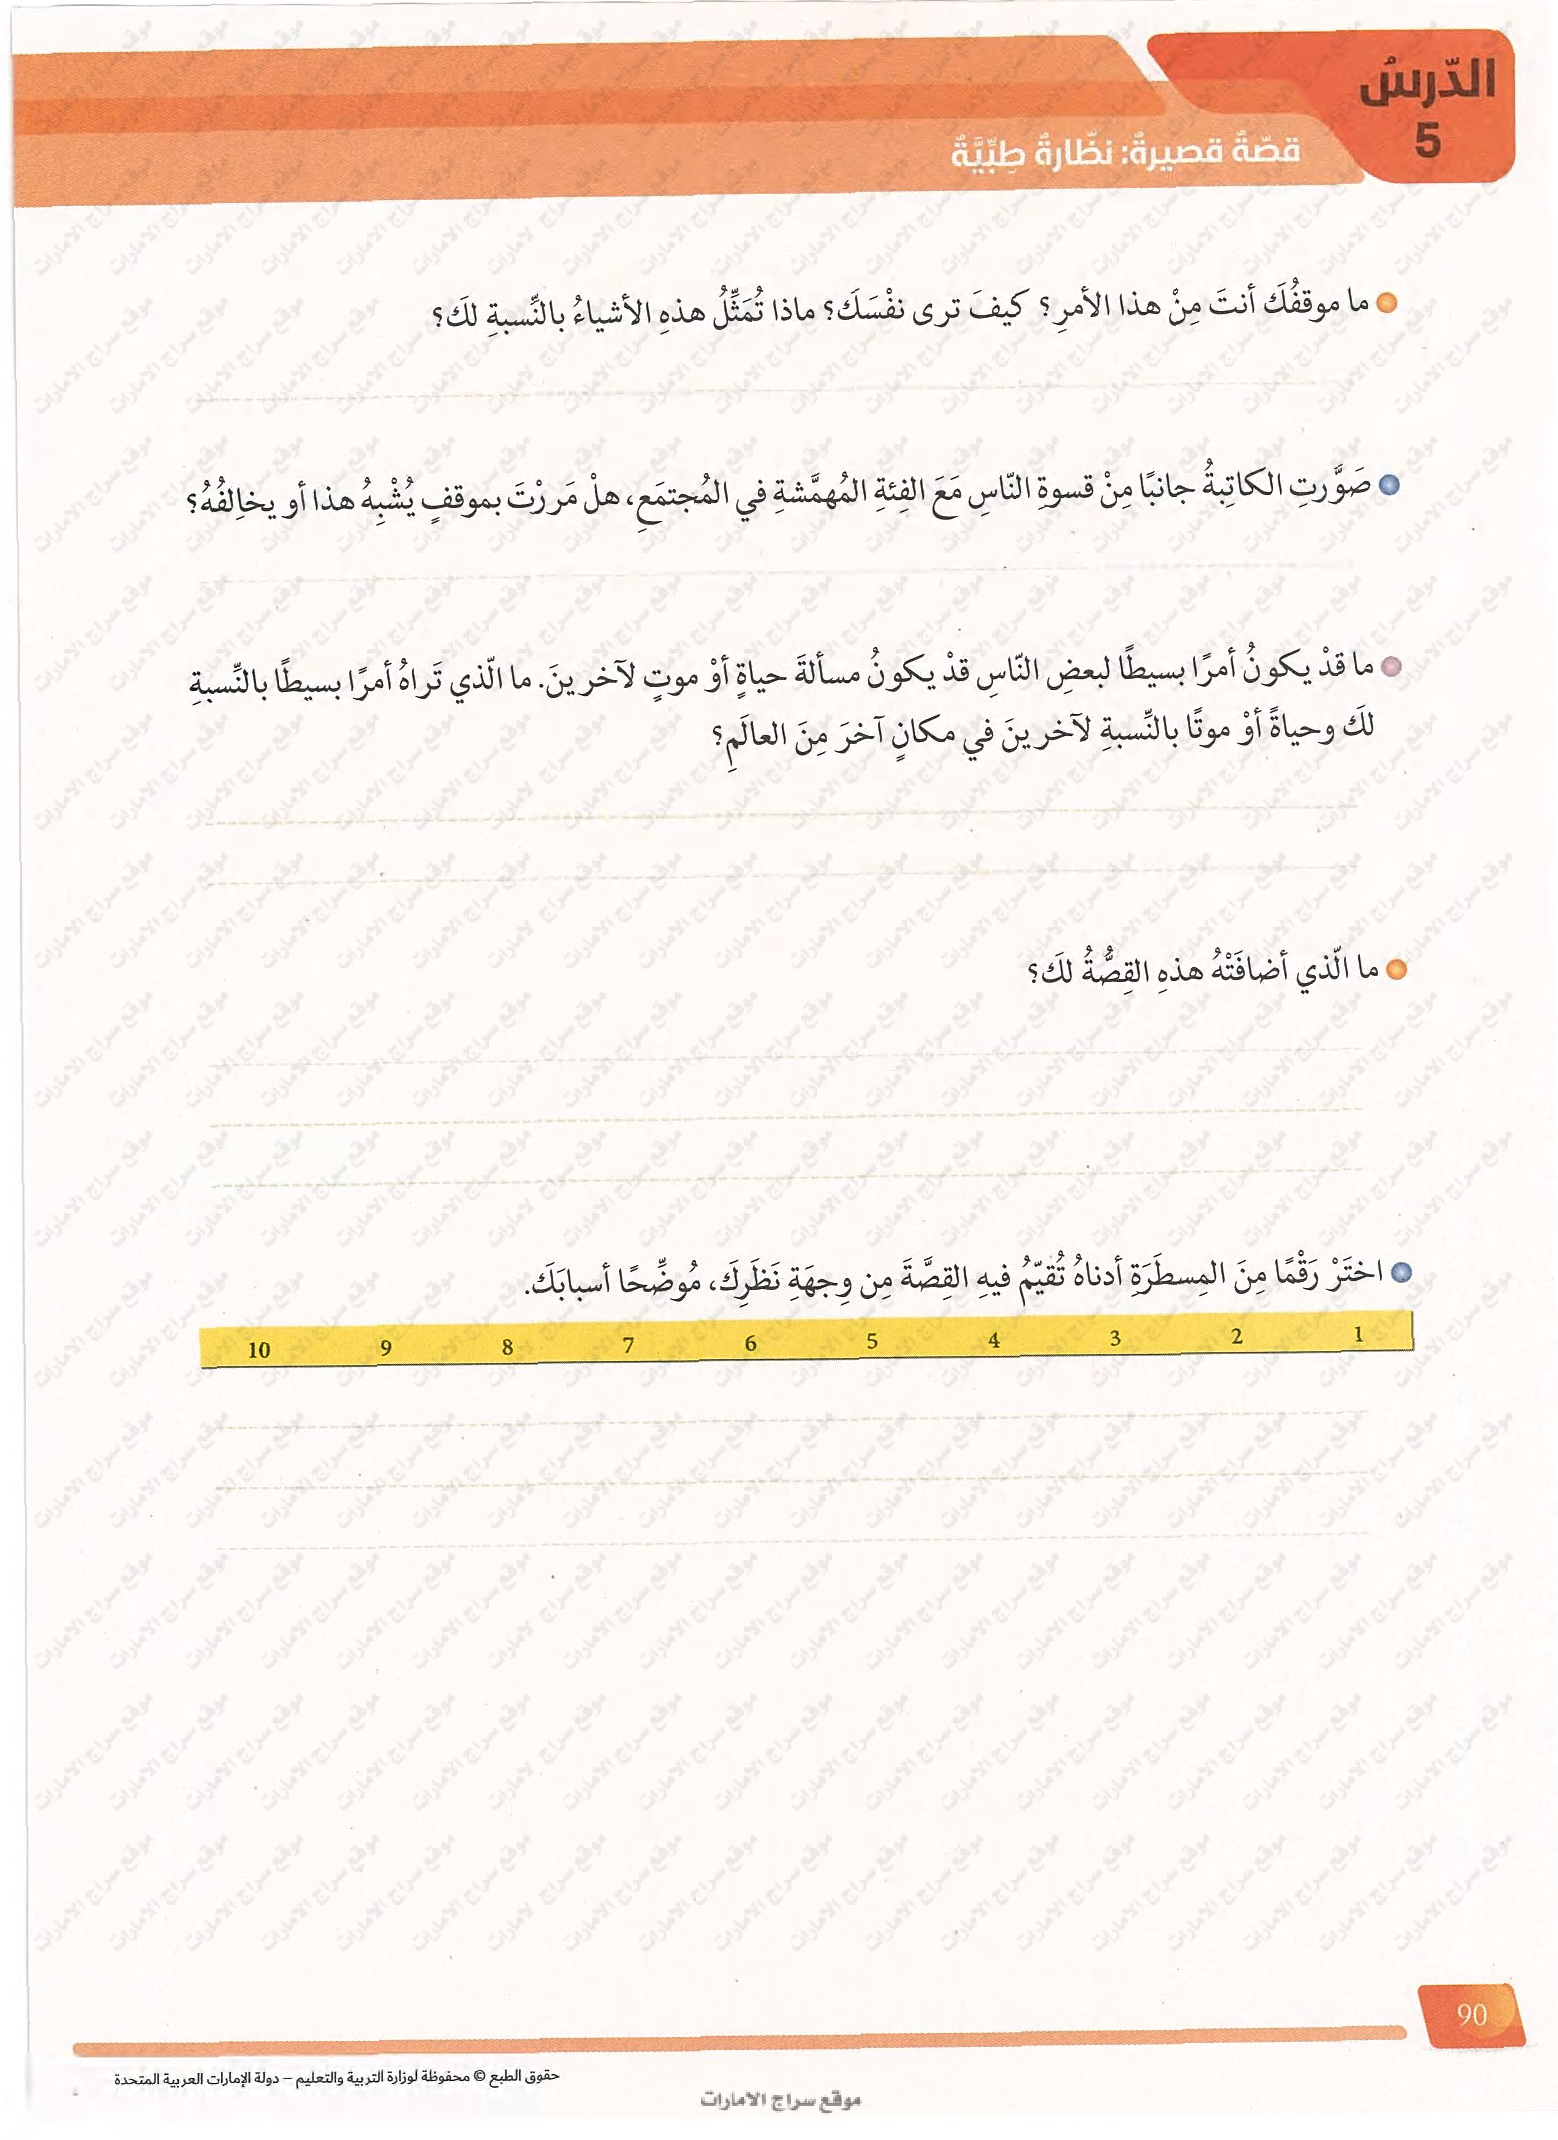 الدّرسُ
5
قصّةٌ قصيرةٌ: نظّارةٌ طِبِّيَّةٌ
ما موقفُكَ أنتَ مِنْ هذا الأمرِ؟ كيفَ ترى نفْسَكَ؟ ماذا تُمَثِّلُ هذهِ الأشياءُ بالنِّسبةِ لكَ؟
صَوَّرتِ الكاتِبةُ جانبًا مِنْ قسوةِ النّاسِ مَعَ الفِئةِ المُهمَّشةِ في المُجتمَعِ، هلْ مَررْتَ بموقفٍ يُشْبِهُ هذا أو يخالِفُهُ؟
ما قدْ يكونُ أمرًا بسيطًا لبعضِ النّاسِ قدْ يكونُ مسألةَ حياةٍ أوْ موتٍ لآخرينَ. ما الّذي تَراهُ أمرًا بسيطًا بالنِّسبةِ
لكَ وحياةً أوْ موتًا بالنِّسبةِ لآخرينَ في مكانٍ آخرَ مِنَ العالَمِ؟
ما الّذي أضافَتْهُ هذهِ القِصُّةُ لكَ؟
اختَرْ رَقْمًا مِنَ المِسطَرَةِ أدناهُ تُقيّمُ فيهِ القِصَّةَ مِن وِجهَةِ نَظَرِكَ، مُوضِّحًا أسبابَكَ.
1 2 3 4 5 6 7 8 9 10
90
حقوق الطبع © محفوظة لوزارة التربية والتعليم – دولة الإمارات العربية المتحدة
موقع سراج الامارات